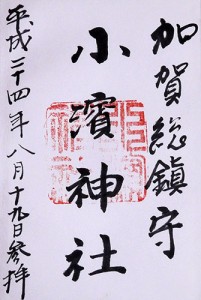 加賀総鎮守
小濱神社
平成二十四年八月十九日参拝